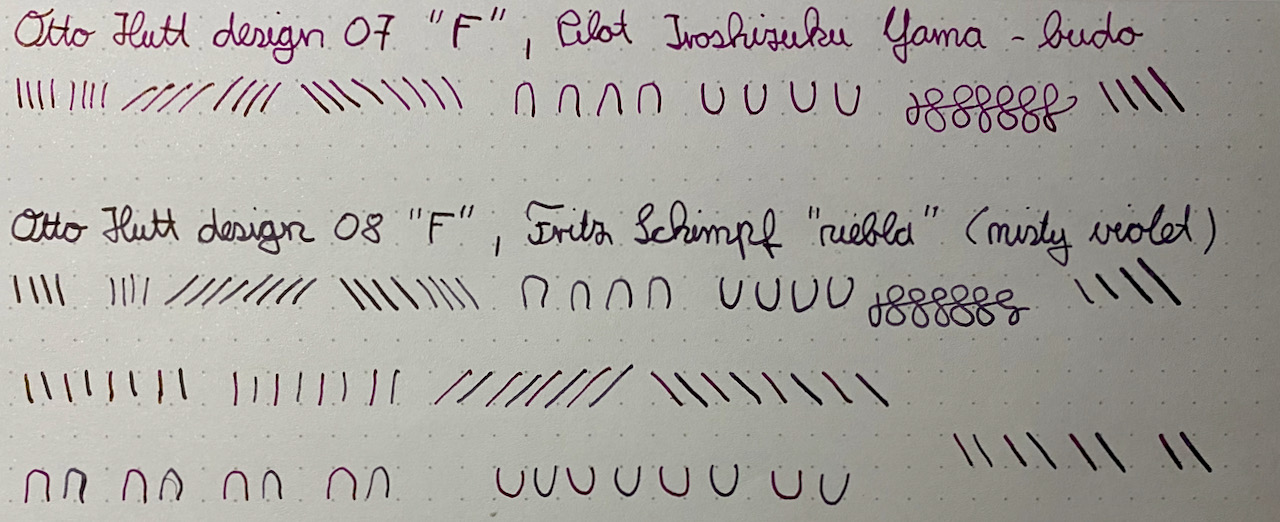 Otto Hutt design 07 "F", Pilot Iroshizuku Yama-budo
Otto Hutt design 08 "F", Fritz Schimpf "niebla" (misty violet)